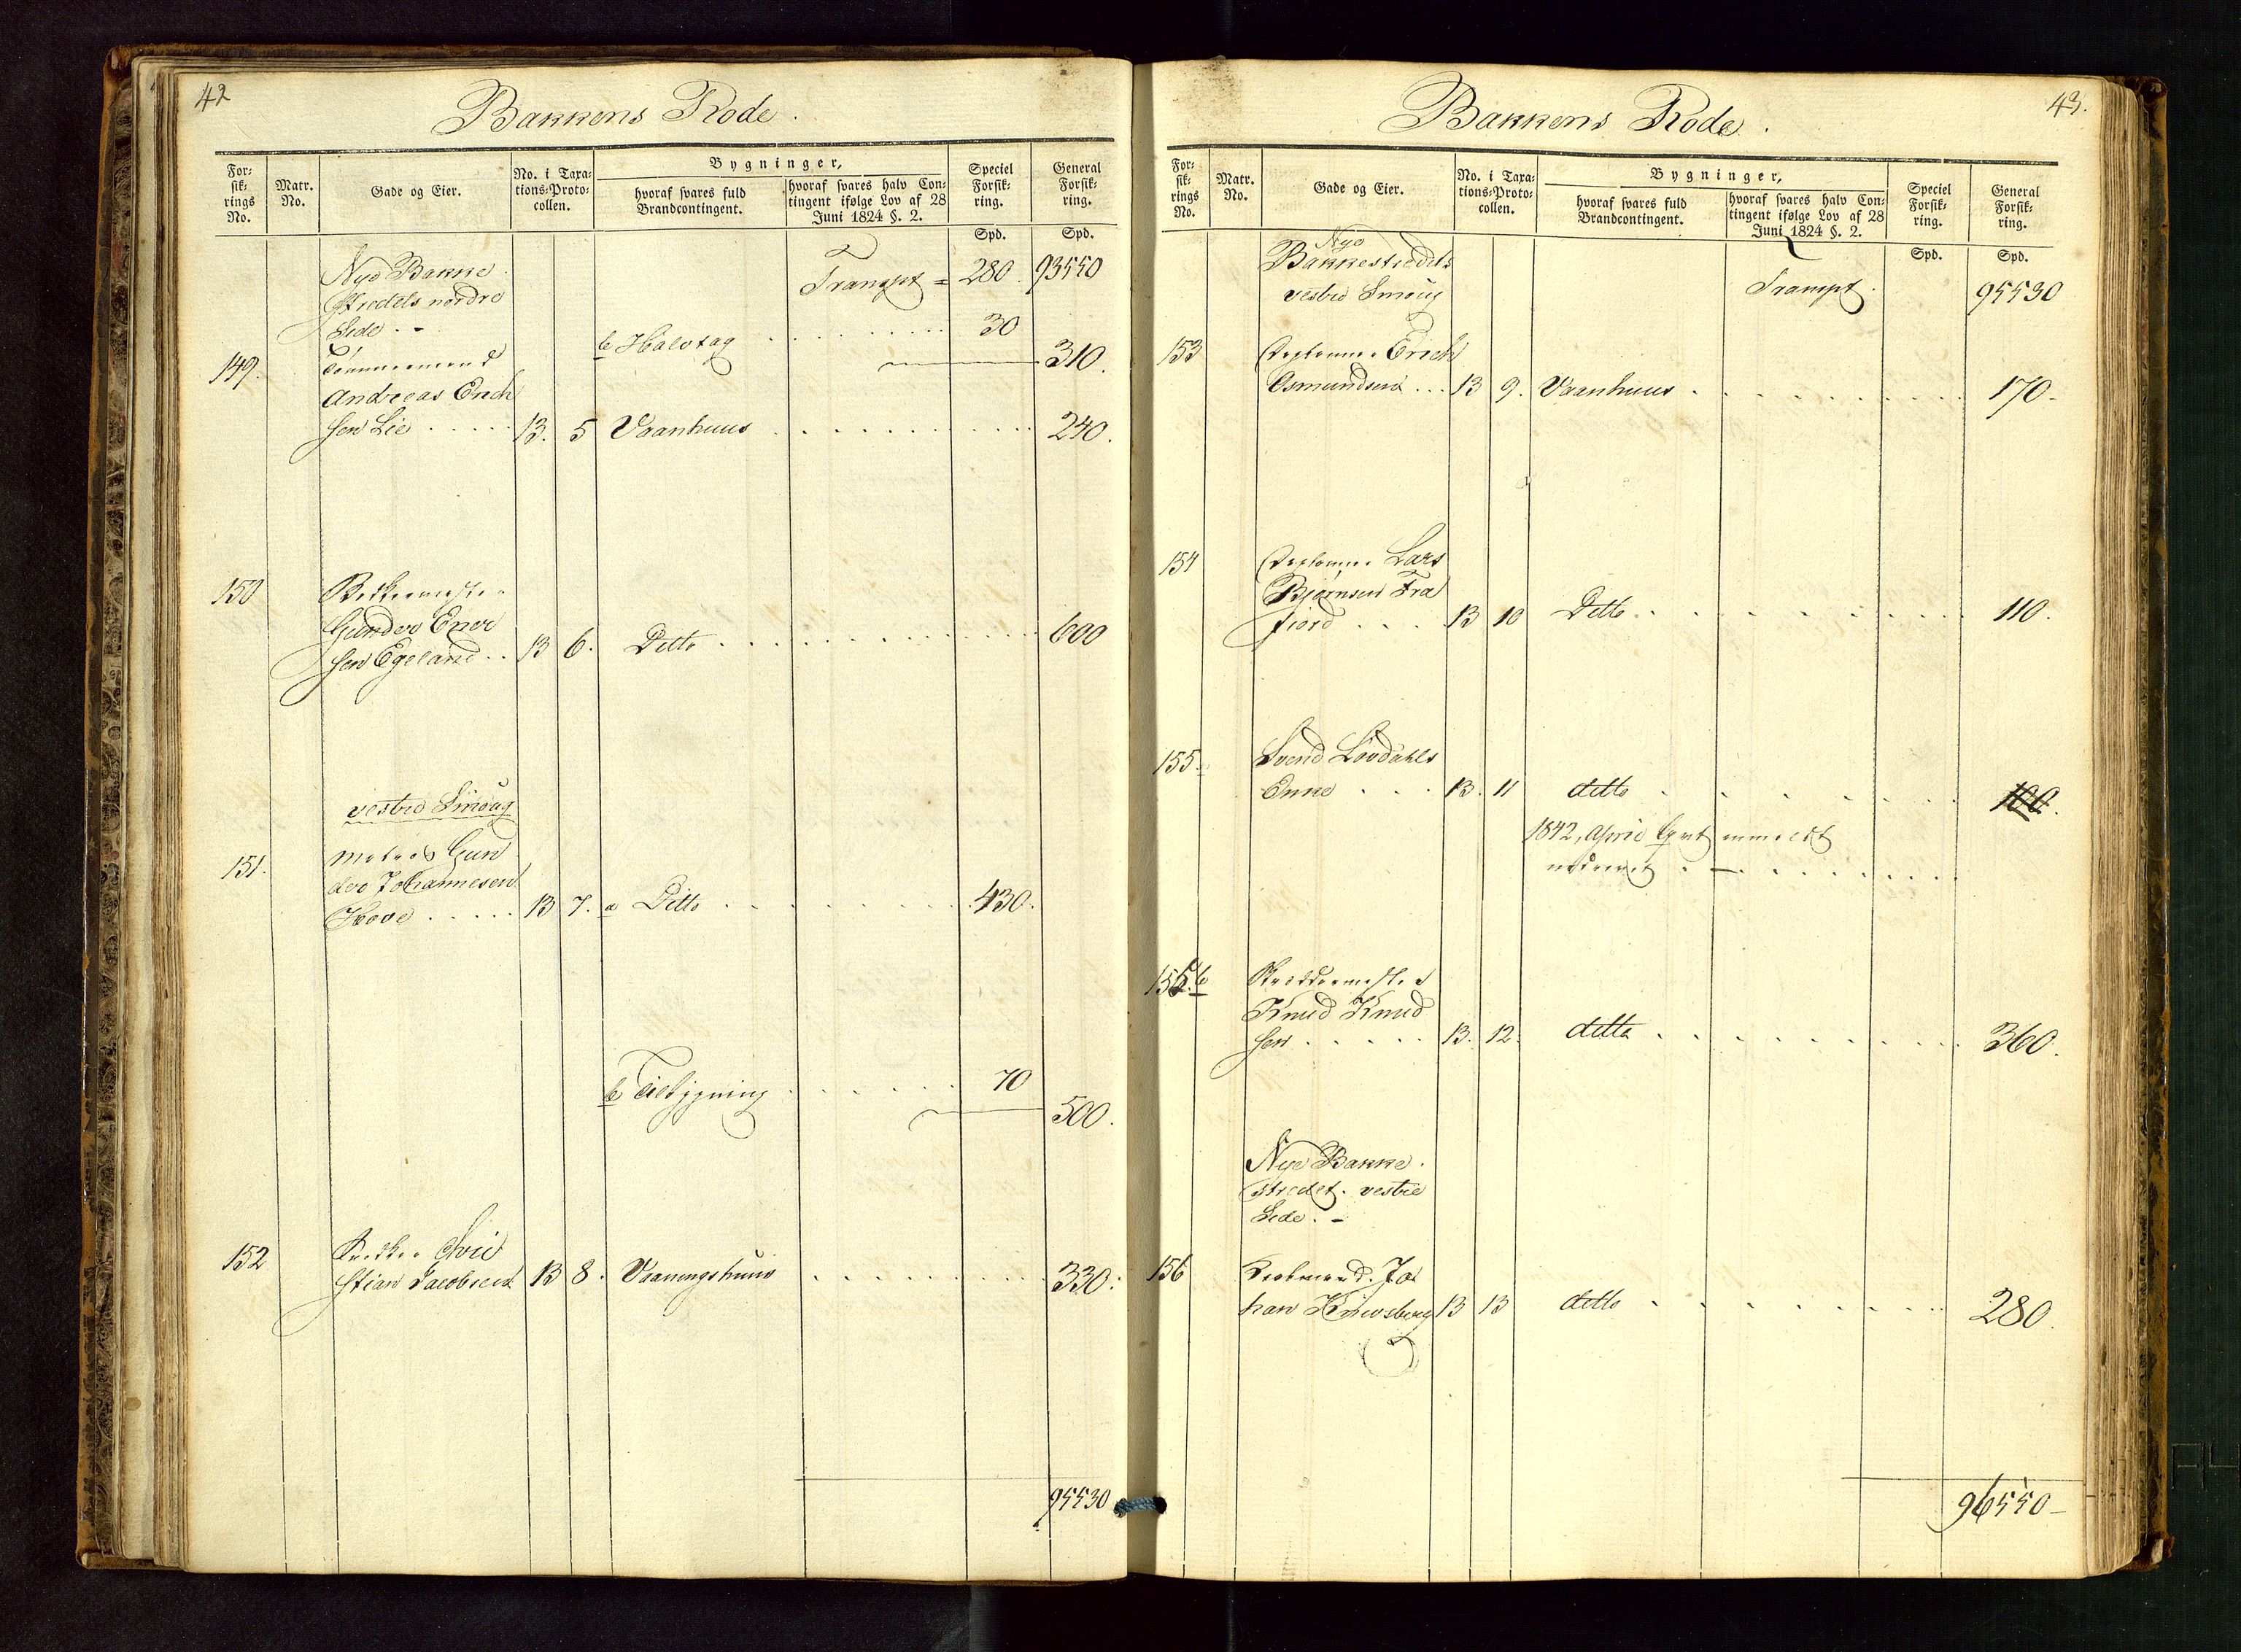 42
Bakkens Rode.
For-
sik-
rings
No.
Matr.
No.
Gade og Eier.
No. i Taxa-
tions-Proto-
collen.
Bygninger,
hvoraf svares fuld
Brandcontingent.
hvoraf svares halv Con-
tingent ifølge Lov af 28
Juni 1824 §. 2.
Speciel
Forsik-
ring.
General
Forsik-
ring.
Spd.
Spd.
Nye Bakke
Strædets nordre
Side. -
Transpt = 280. 93550
b Halvtag . . . . . . 30
310.
149. Tømmermand
Andreas Erich
sen Lie . . . . . 13. 5 Vaanhuus . . . . . . . . . 240.
150
Gunder Ener
sen Egeland . . 13 6. Ditto . . . . . . . . . 600
vestre Smoug
151. Gun
der Johannesen
Hove . . . . . 13 7. a Ditto . . . . . . . 430.
b Tilbygning . . . . . 70
500.
152 Chri
stian Jacobsen 13 8. Vaaningshuus . . . . . . . . 330.
95530
43.
Bakkens Rode.
For-
sik-
rings
No.
Matr.
No.
Gade og Eier.
No. i Taxa-
tions-Proto-
collen.
Bygninger,
hvoraf svares fuld
Brandcontingent.
hvoraf svares halv Con-
tingent ifølge Lov af 28
Juni 1824 §. 2.
Speciel
Forsik-
ring.
General
Forsik-
ring.
Spd.
Spd.
Nye
Bakkestrædets
vestre Smoug
Transpt. 95530
153 Erich
Osmundsen . . . 13 9. Vaanhuus . . . . . . . . . 170.
154 Lars
Bjørnsen Fra
fjord . . . . 13 10 Ditto . . . . . . . . 110.
155. Svend Lövdahls
Enke . . . 13. 11 ditto . . . . . . . 100.
1842, April
155.b Skræddermester
Knud Knud
sen . . . . . 13. 12. ditto . . . . . . . . 360.
Nye Bakke
strædet. vestre
Side. -
156 Jo
han 13 13 ditto . . . . . . . . 280.
96550